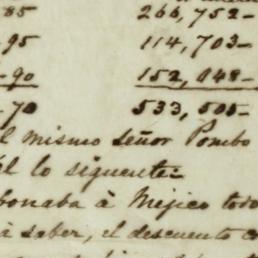 -85 266,752-
-95 114,703-
-90 152,048-
-70 533,505-
el mismo señor Pombo
el lo siguiente:
bonaba à Mejico todo
à saber, el descuento